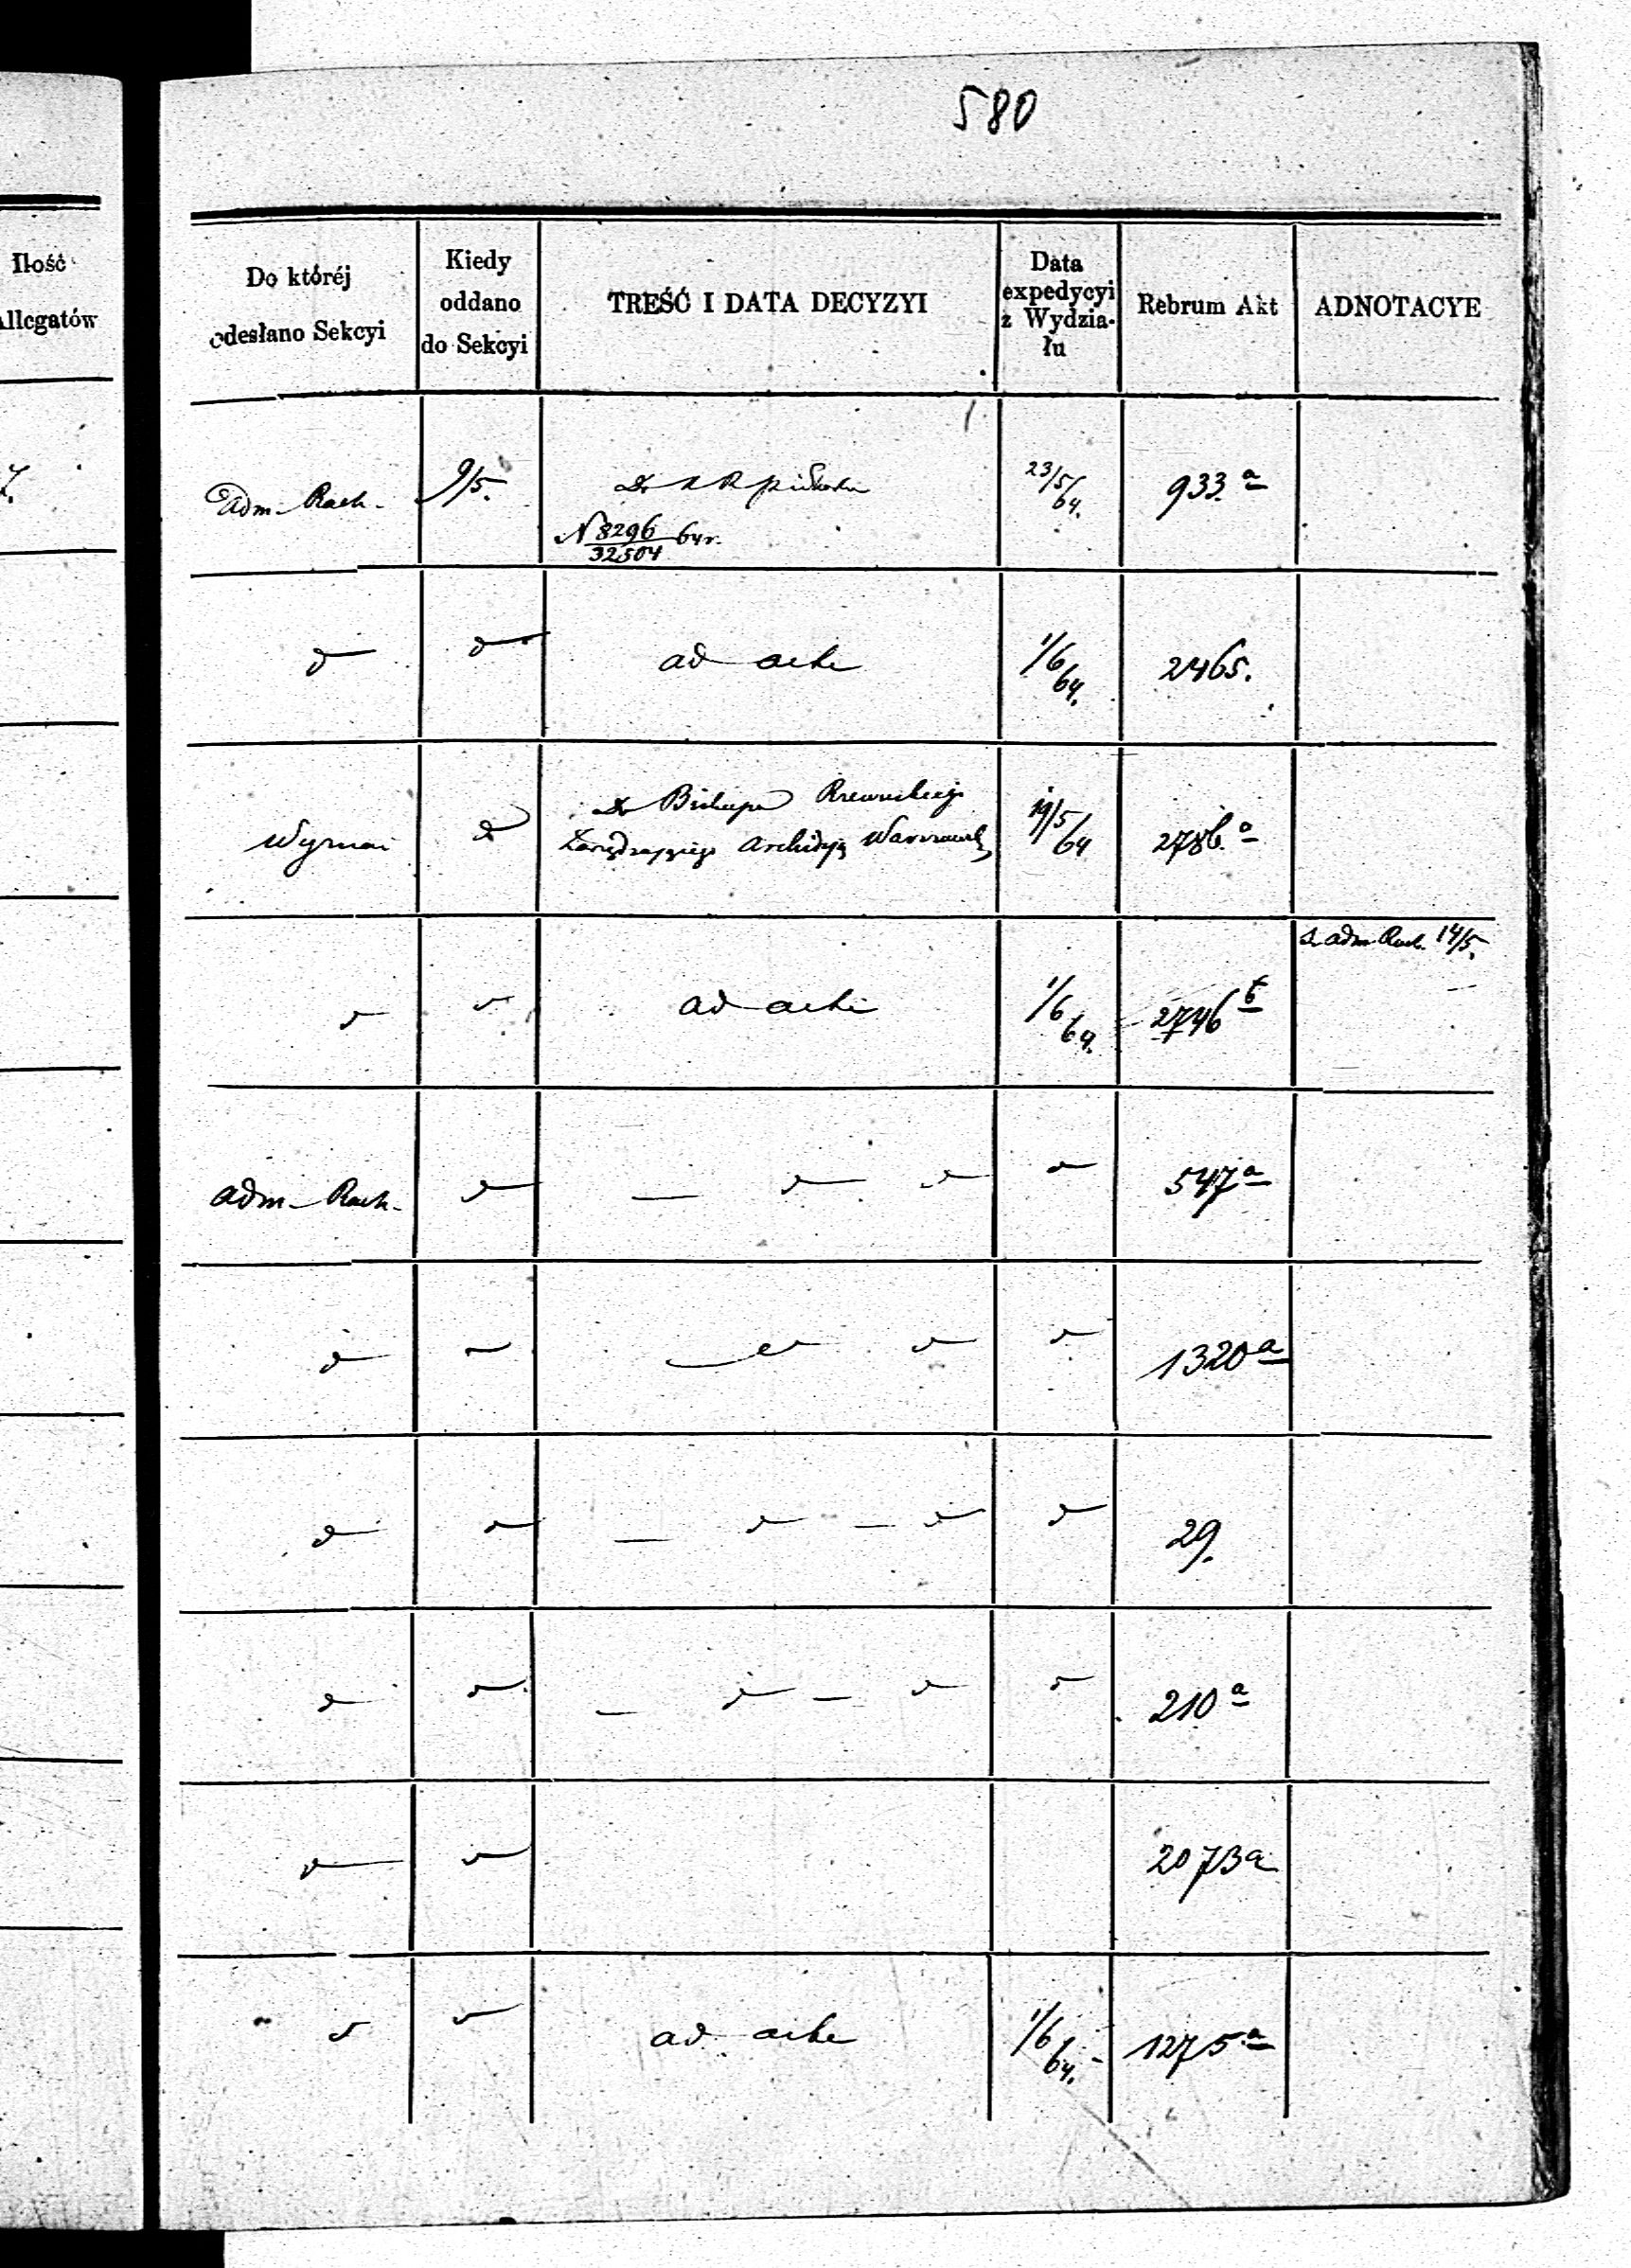 580
Ilość
Allegatów
Do któréj
odesłano Sekcyi
Kiedy
oddano
do Sekcyi
TREŚĆ I DATA DECYZYI
Data
expedycyi
z Wydzia-
łu
Rebrum Akt
ADNOTACYE
Adm- Rach-
9/5.
23/5/64.
933 a
N 8296/32504 64 r.
ad acta
1/6/64.
2465.
Wyznań
Do Biskupa Rzewuskiego
Zarządzającego Archidyą Warszawską
19/5/64
2786. a
do adm Rach. 14/5.
ad acta
1/6/64.
2746 b
adm- Rach-
547 a
1320 a
29.
210 a
2073 a
ad acta
1/6/64.
1275 a